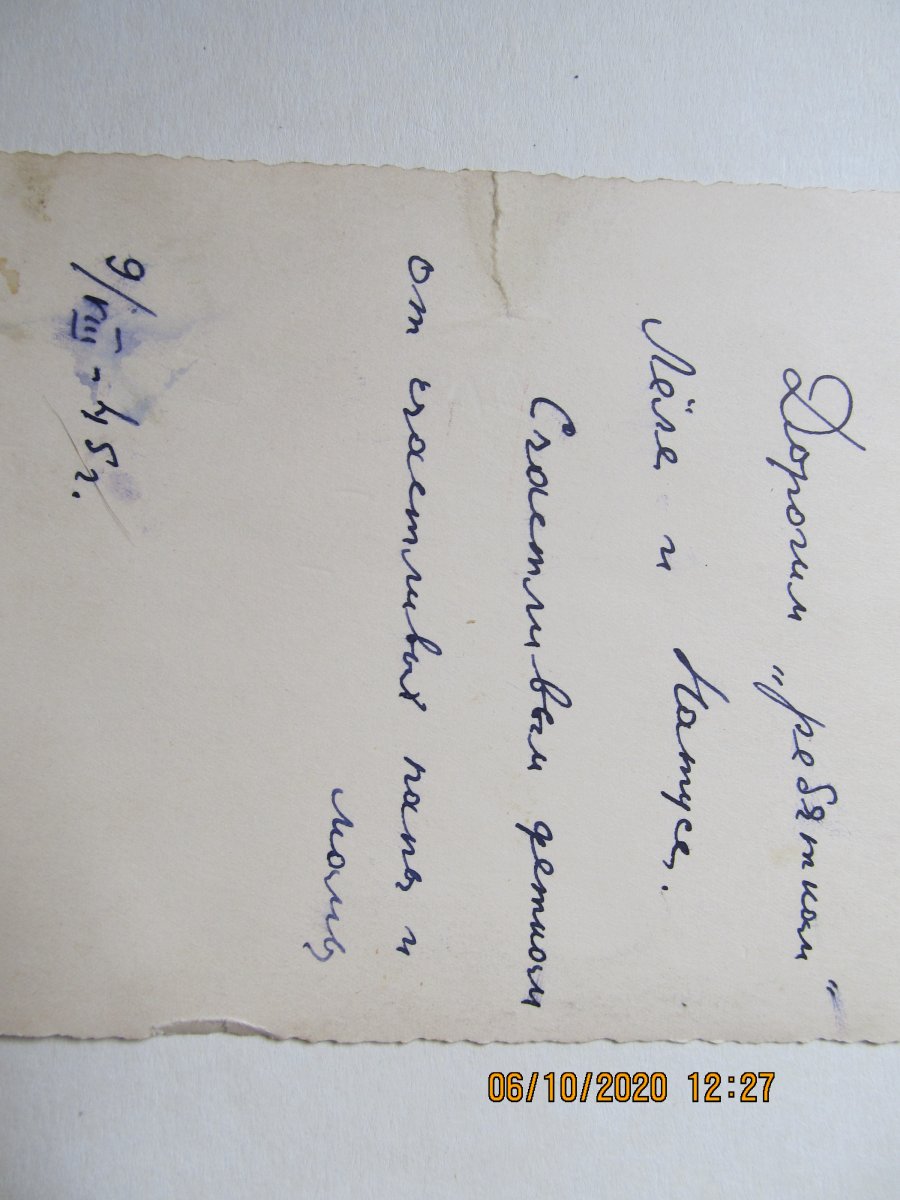 Дорогим „ребяткам"
Лёле и Натусе.
Счастливым деткам
от счастливых папы и
мамы
9/VIII - 45 г.
06/10/2020 12:27